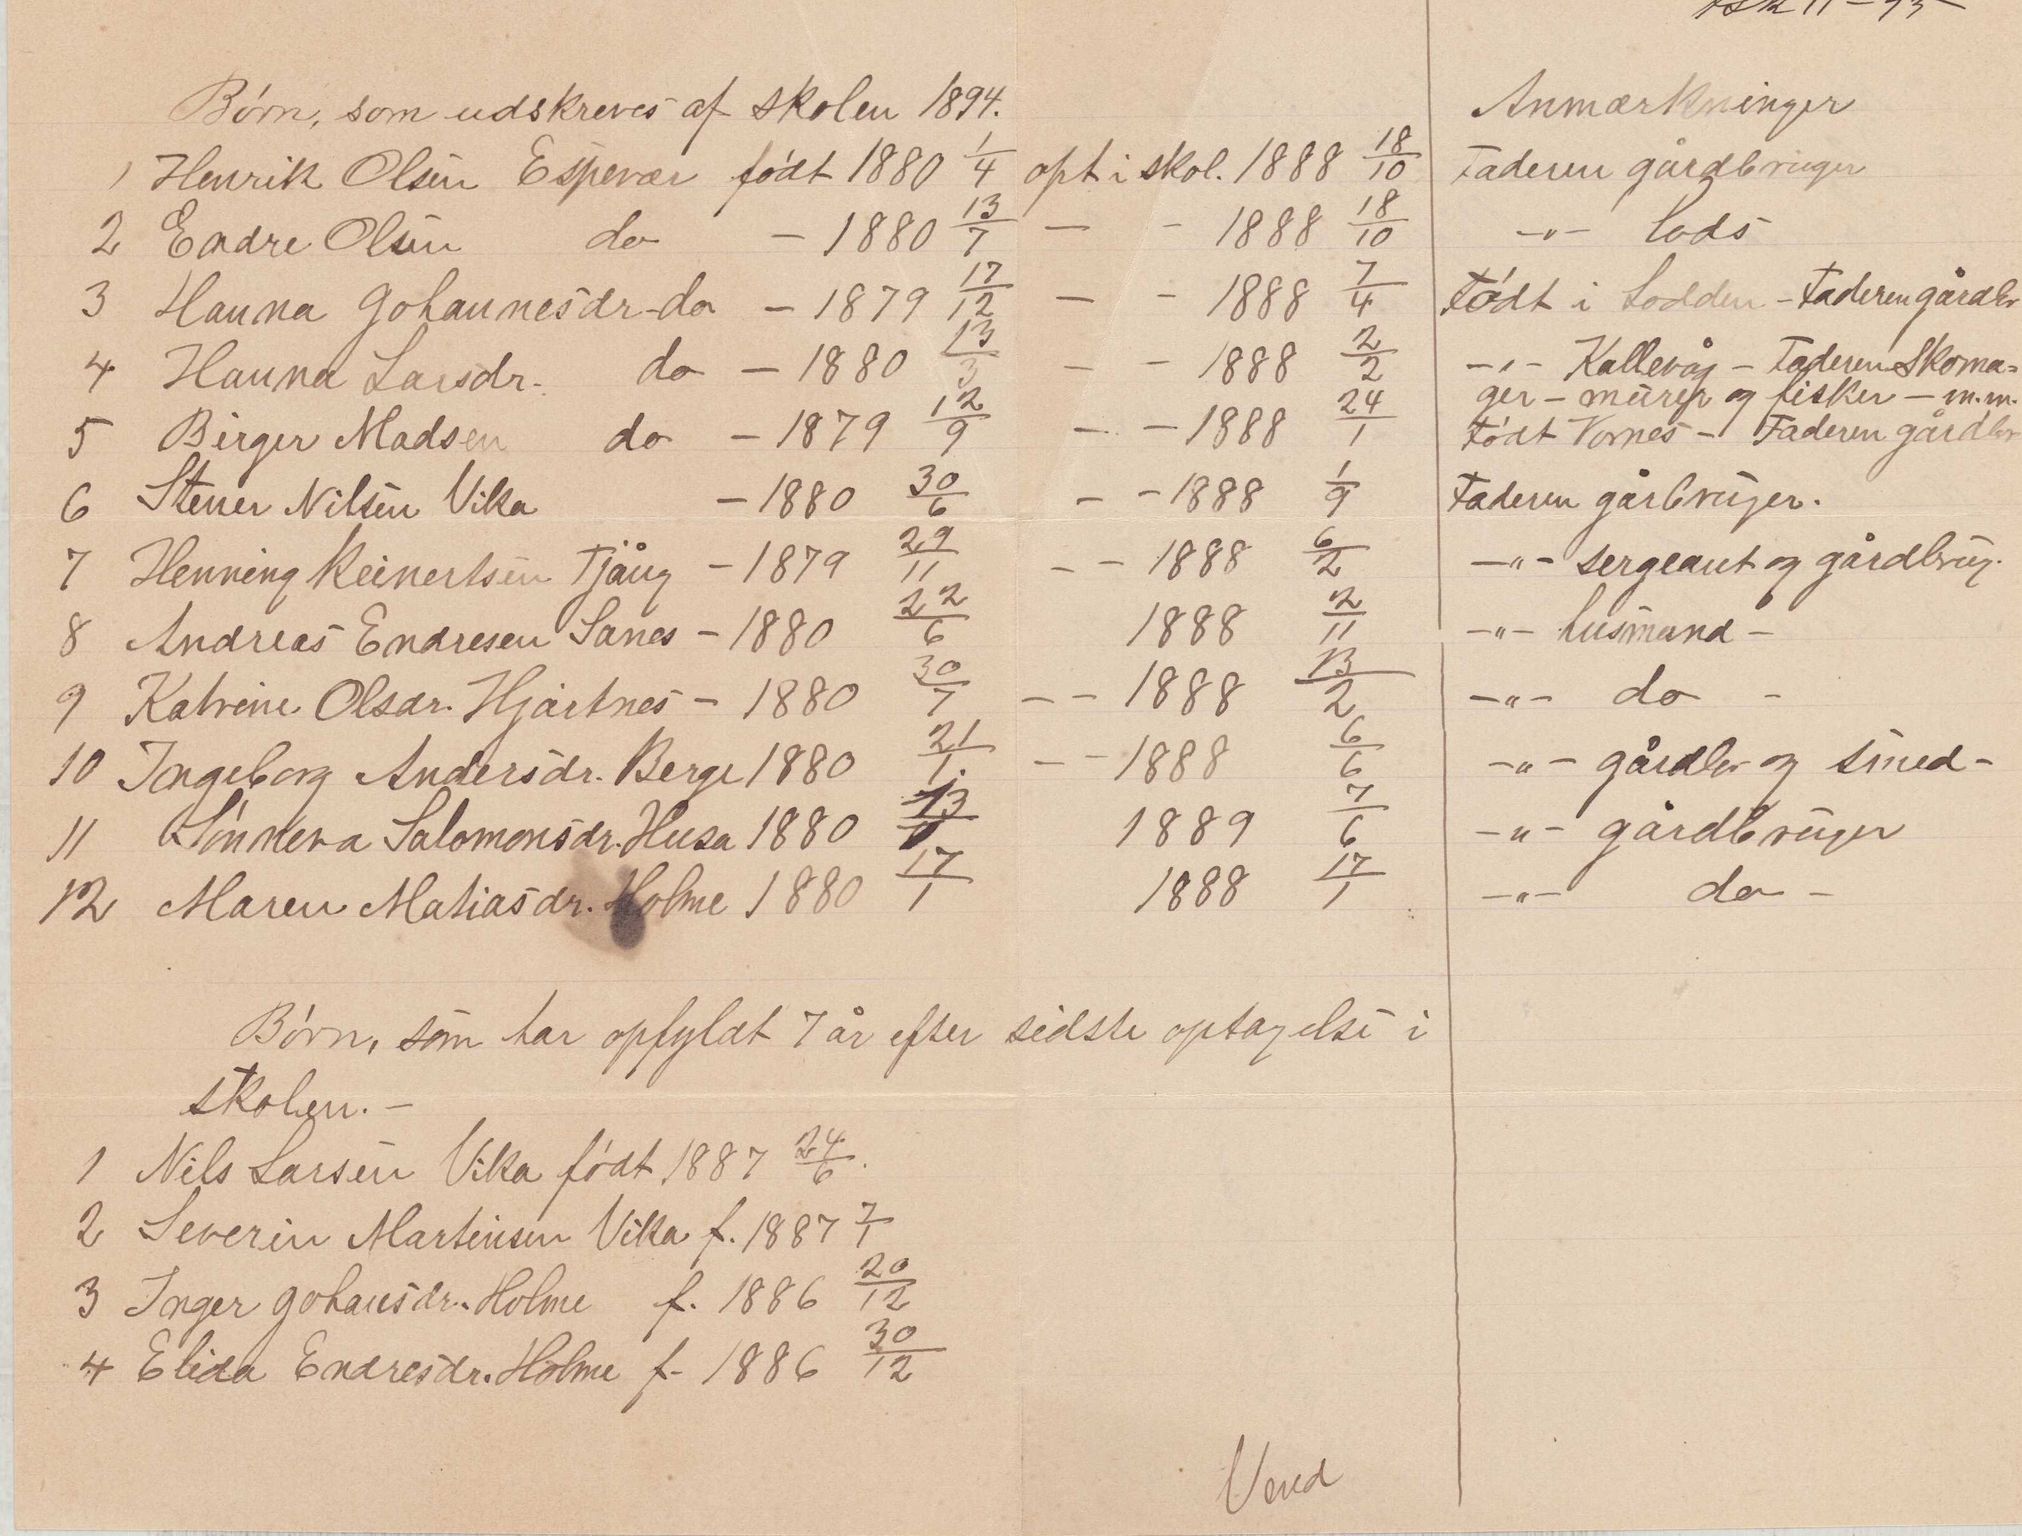 Børn, som udskreves af skolen 1894. Anmærkninger
1 Henrik Olsen Espevær født 1880 1/4 opt i skol. 1888 18/10 Faderen gårdbruger
2 Endre Olsen do - 1880 13/7 - - 1888 18/10 -"- lods
3 Hanna Johannesdr. do - 1879 17/12 - - 1888 7/4 Født i Lodden - Faderen gårdbr
4 Hanna Larsdr. do - 1880 13/3 - - 1888 2/2 -"- Kallevåg - Faderen Skoma=
ger - murer og fisker - m.m.
5 Birger Madsen do - 1879 12/9 - - 1888 24/1 Født Vornes - Faderen gårdbr
6 Stener Nilsen Vika - 1880 30/6 - - 1888 1/9 Faderen gårbruger.
7 Henning Reinertsen Tjång - 1879 29/11 - - 1888 6/2 -"- sergeant og gårdbrug.
8 Andreas Endresen Sanes - 1880 22/6 1888 2/11 -"- husmand -
9 Katrine Olsdr. Hjartnes - 1880 30/7 - - 1888 13/2 -"- do -
10 Ingeborg Andersdr. Berge 1880 21/1 - - 1888 6/6 -"- gårdbr og smed -
11 Sønneva Salomonsdr. Husa 1880 1889 7/6 -"- gårdbruger
12 Maren Matiasdr. Holme 1880 17/1 1888 17/1 -"- do -
Børn, som har opfyldt 7 år efter sidste optagelse i
skolen. -
1 Nils Larsen Vika født 1887 24/6.
2 Severin Martinsen Vika f. 1887 7/1
3 Inger Johansdr. Holme f. 1886 20/12
4 Elida Endresdr. Holme f- 1886 30/12
Vend